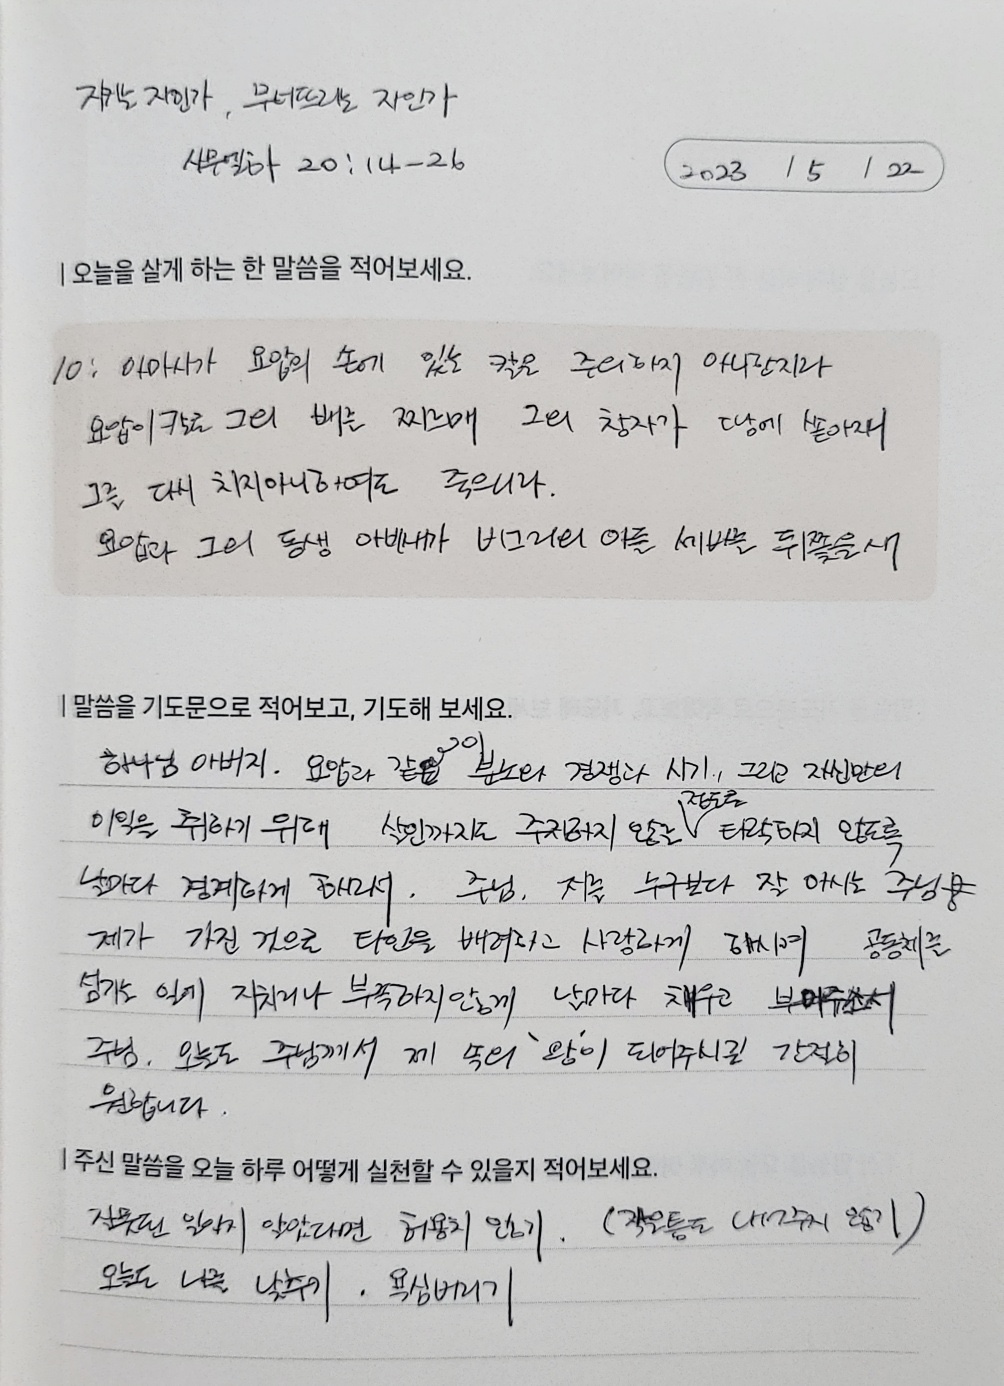 지키는 자인가, 무너뜨리는 자인가
사무엘하 20:14-26
2023 / 5 / 22
오늘을 살게 하는 한 말씀을 적어보세요.
10: 아마사가 요압의 손에 있는 칼은 주의하지 아니한지라
요압이 칼로 그의 배를 찌르매 그의 창자가 땅에 쏟아져
그를 다시 치지아니하여도 죽으니라.
요압과 그의 동생 아비새가 비그리의 아들 세바를 뒤쫓을새
말씀을 기도문으로 적어보고, 기도해 보세요.
하나님 아버지. 요압과 같이 분노와 경쟁과 시기, 그리고 자신만의
이익을 취하기 위해 살인까지도 주저하지 않는 정도로 타락하지 않도록
날마다 경계하게 하소서. 주님, 저를 누구보다 잘 아시는 주님
제가 가진 것으로 타인을 배려하고 사랑하게 하시며 공동체를
섬기는 일에 지치거나 부족하지않게 날마다 채우고 부어주소서
주님. 오늘도 주님께서 제 속의 '왕'이 되어주시길 간절히
원합니다.
주신 말씀을 오늘 하루 어떻게 실천할 수 있을지 적어보세요.
잘못된 일인지 알았다면 허용치 않기. (작은틈도 내어주지 않기)
오늘도 나를 낮추기. 욕심버리기